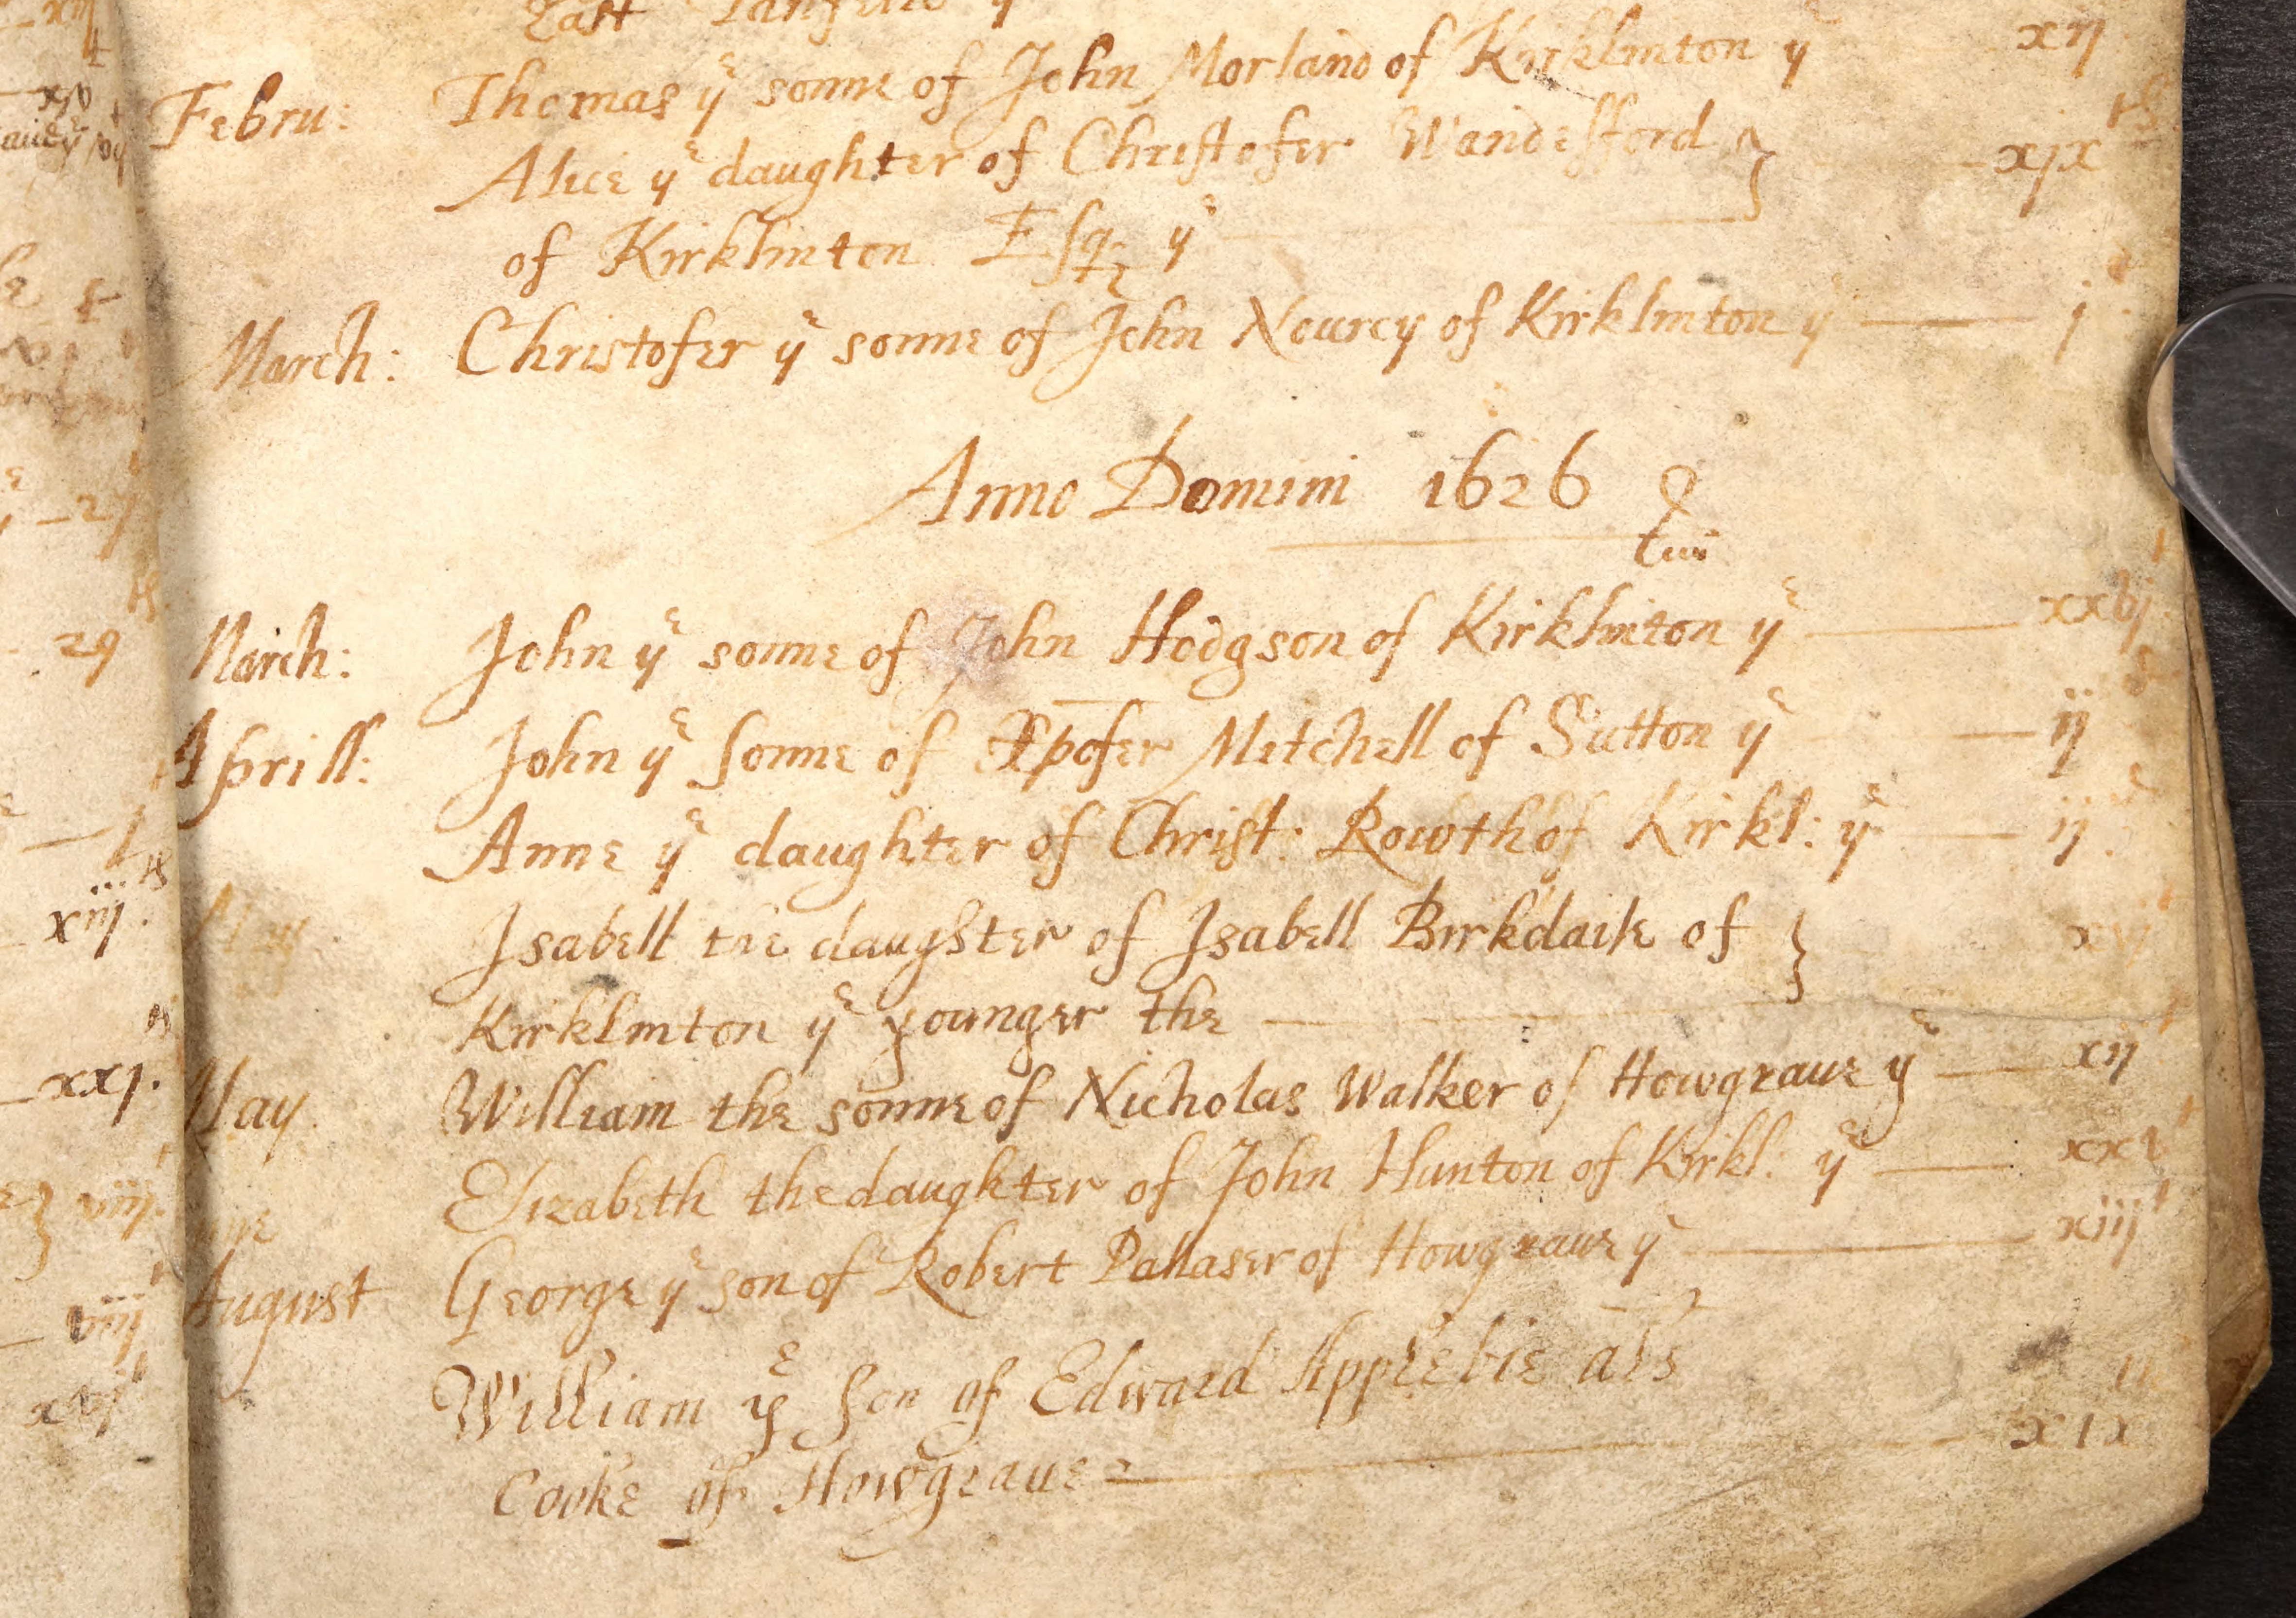 East Tanfield yᵉ
Febru: Thomas yᵉ sonne of John Morland of Kirklinton yᵉ xij
Alice yᵉ daughter of Christofer Wandesford } xjxth
of Kirklinton Esqr yᵉ
March: Christofer yᵉ sonne of John Nourcy of Kirklinton yᵉ j
Anno Domini 1626
March: John yᵉ sonne of John Hodgson of Kirklinton yᵉ xxvj
Aprill: John yᵉ sonne of Xpofer Mitchell of Sutton yᵉ ij
Anne yᵉ daughter of Christ: Rowth of Kirkl: yᵉ ij
May Isabell the daughter of Isabell Birkdaile of }
Kirklinton yᵉ younger the
May William the sonne of Nicholas Walker of Howgraue yᵉ xij
Elizabeth the daughter of John Hunton of Kirkl: yᵉ
August George yᵉ son of Robert Pallaser of Howgraue yᵉ xiij
William yᵉ son of Edward Applebie als
Cooke of Howgraue xix
29
xiij
xxj.
viij
viij